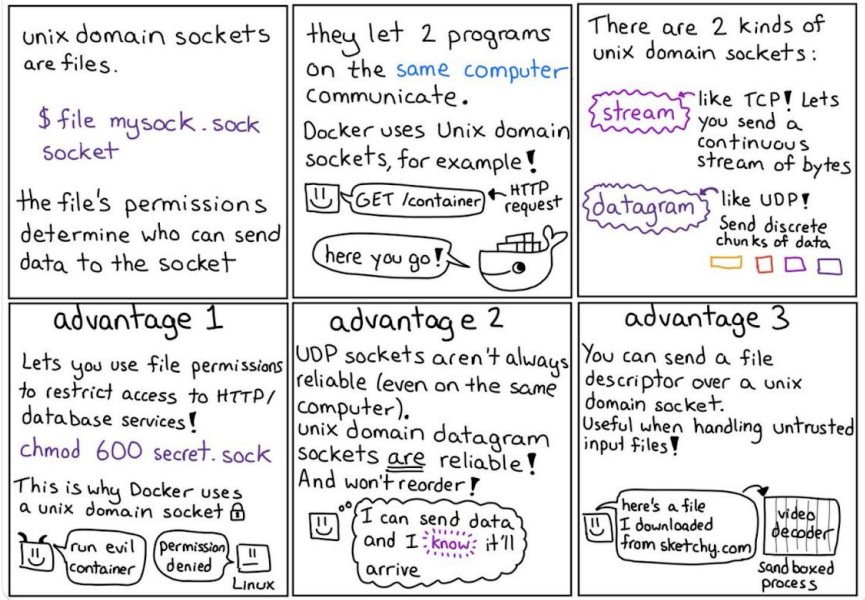 unix domain sockets
are files.
$ file mysock.sock
socket
the file's permissions
determine who can send
data to the socket
they let 2 programs
on the same computer
communicate.
Docker uses Unix domain
sockets, for example!
GET /container
HTTP
request
here you go!
There are 2 kinds of
unix domain sockets:
stream
like TCP! Lets
you send a
continuous
stream of bytes
datagram
like UDP!
Send discrete
chunks of data
advantage 1
Lets you use file permissions
to restrict access to HTTP/
database services!
chmod 600 secret.sock
This is why Docker uses
a unix domain socket
run evil
container
permission
denied
Linux
advantage 2
UDP sockets aren't always
reliable (even on the same
computer).
unix domain datagram
sockets are reliable!
And won't reorder!
I can send data
and I know it'll
arrive
advantage 3
You can send a file
descriptor over a unix
domain socket.
Useful when handling untrusted
input files!
here's a file
I downloaded
from sketchy.com
video
decoder
sandboxed
process